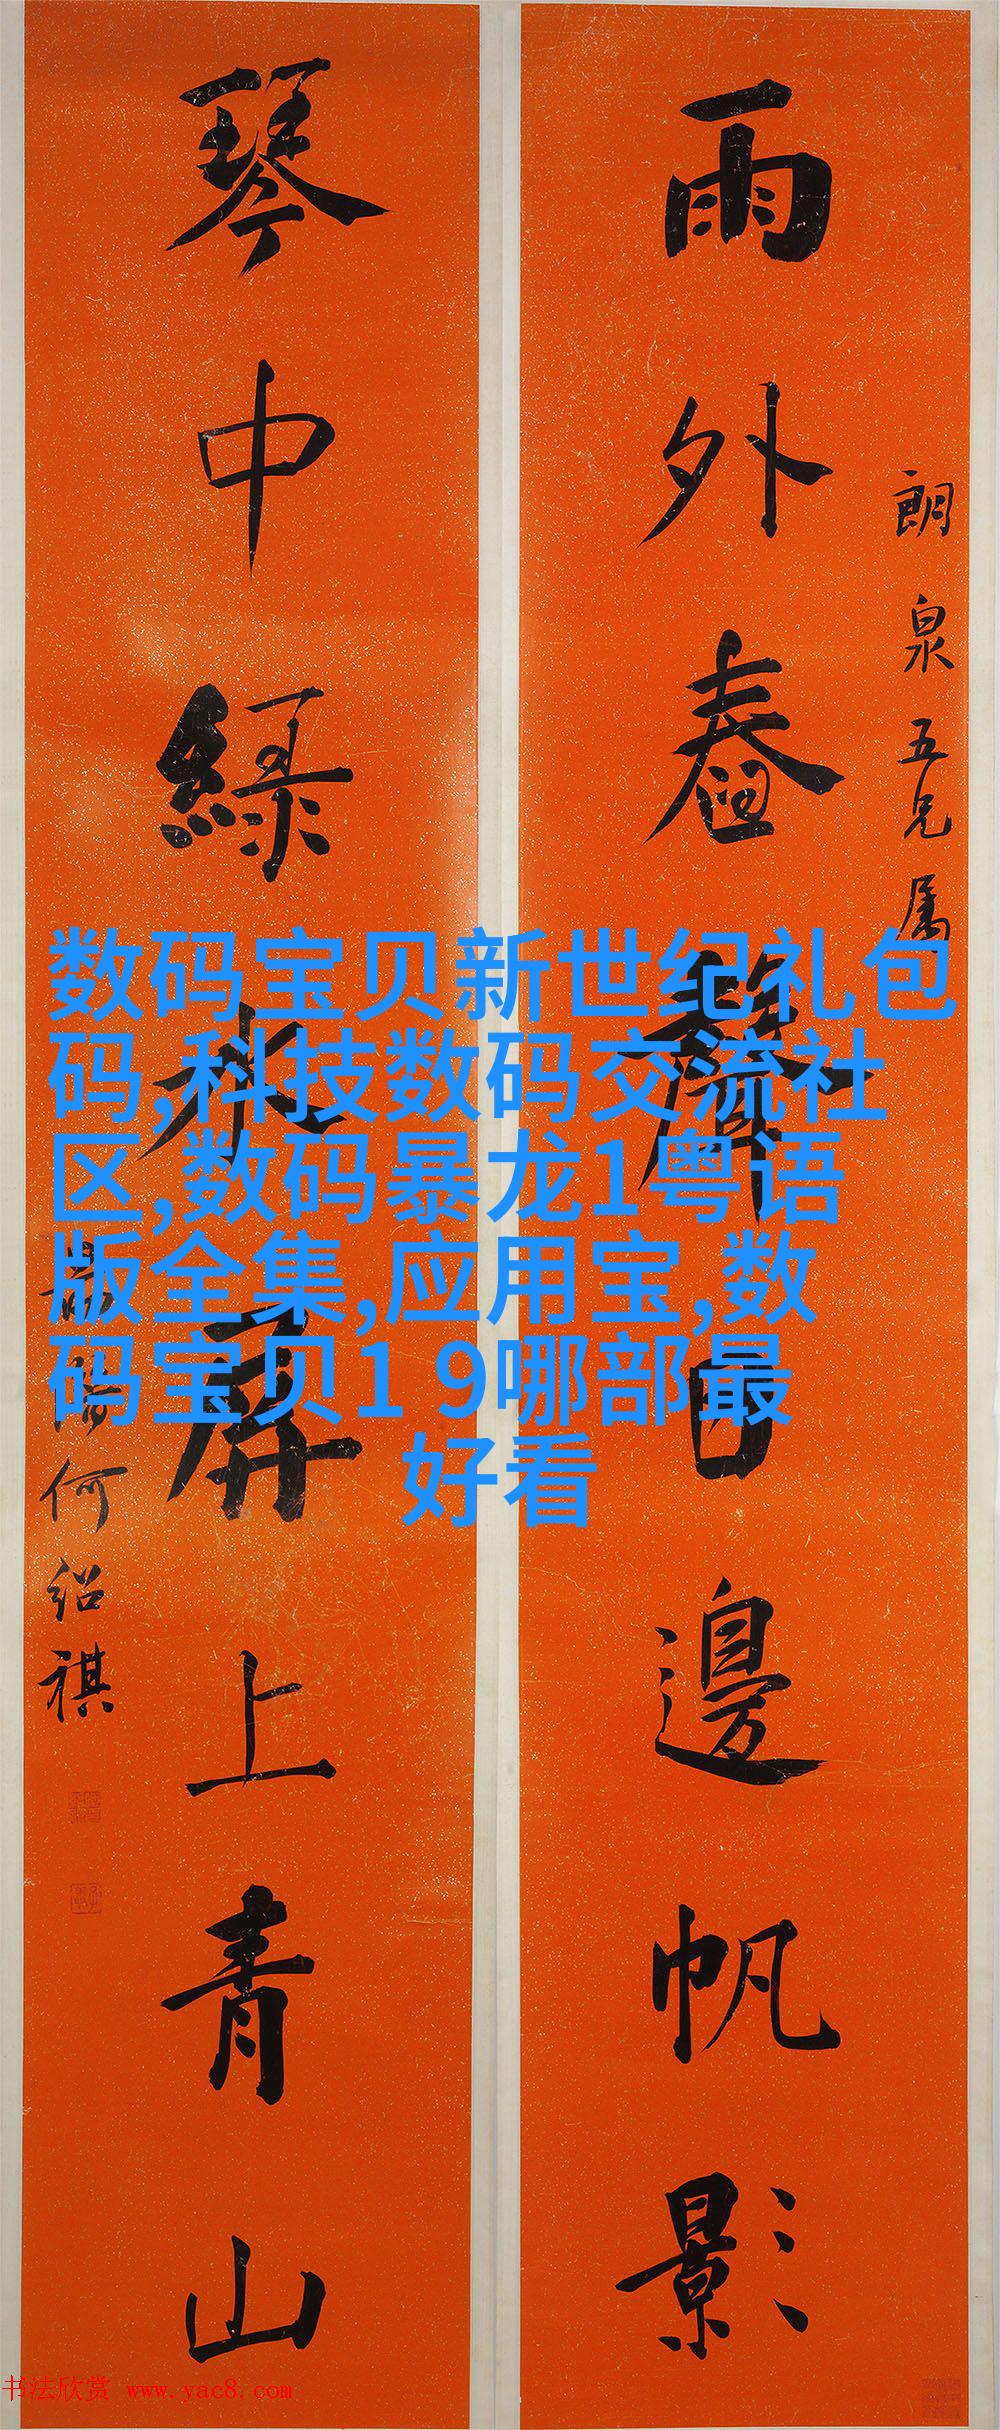 雨外舂聲日邊帆影
朗泉五兄属
琴中綠水屏上青山
何紹祺
数码宝贝新世纪礼包
码,科技数码交流社
区,数码暴龙1粤语
版全集,应用宝,数
码宝贝1 9哪部最
好看
书法欣赏 www.yac8.com